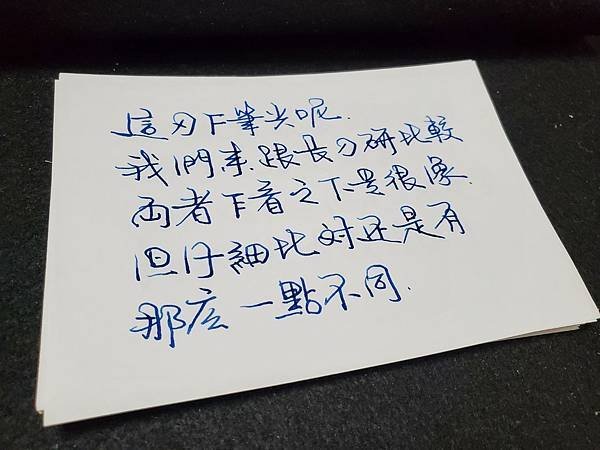 這刀下筆尖呢.
我們來跟長刀研比較
兩者下看之下是很像.
但仔細比对还是有
那底一點不同.